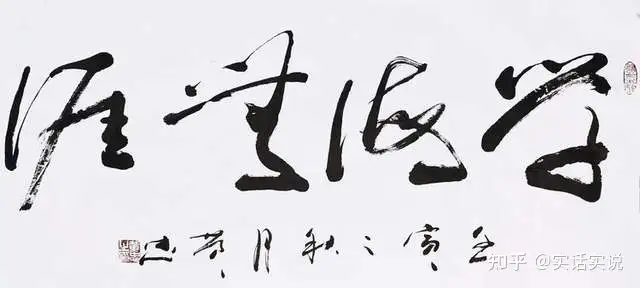 学海無涯
壬寅之秋月
知乎 @实话实说